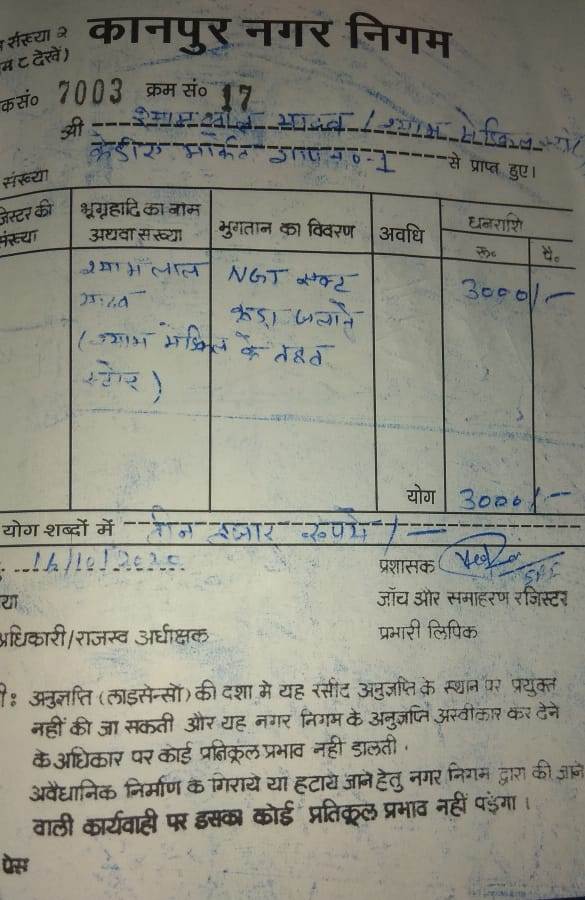 संख्या २ कानपुर नगर निगम
म ८ देखें)
कसं० 7003 क्रम सं० 17
श्री श्यामलाल यादव / श्याम मेडिकल
मार्केट -1 से प्राप्त हुए।
संख्या
जिस्टर की संख्या
भूग्रहादि का नाम अथवा सख्या
भुगतान का विवरण
अवधि
धनराशि
रू० पै०
श्यामलाल NGT एक्ट 3000/-
यादव कूड़ा जलाने
(श्याम मेडिकल के तहत
स्टोर)
योग 3000/-
योग शब्दों में तीन हजार रुपये/-
प्रशासक
जाँच और समाहरण रजिस्टर
अधिकारी/राजस्व अधीक्षक
प्रभारी लिपिक
अनुज्ञप्ति (लाइसेन्सों) की दशा मे यह रसीद अनुज्ञप्ति के स्थान पर प्रयुक्त
नहीं की जा सकती और यह नगर निगम के अनुज्ञप्ति अस्वीकार कर देने
के अधिकार पर कोई प्रतिकूल प्रभाव नही डालती .
अवैधानिक निर्माण के गिराये या हटाये जाने हेतु नगर निगम द्वारा की जाने
वाली कार्यवाही पर इसका कोई प्रतिकूल प्रभाव नहीं पड़ेगा ।
प्रेस